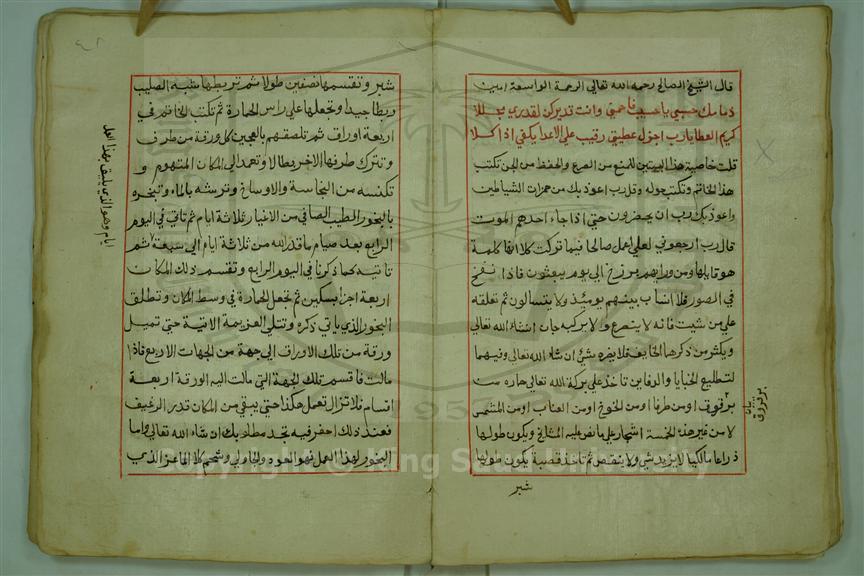 قال الشيخ الصالح رحمه الله تعالى الرحمة الواسعة امين
كريم العطايا رب اجزل عطيتي رقيب على الاعدا يكفي اذا كلا
قلت خاصية هذا البيتين للمنع من الصرع والحفظ من الجن تكتب
هذا الخاتم وتكتب حوله وقل رب اعوذ بك من همزات الشياطين
واعوذ بك رب ان يحضرون حتى اذا جاء احدهم الموت
قال رب ارجعوني لعلي اعمل صالحا فيما تركت كلا انها كلمة
هو قايلها ومن ورايهم برزخ الى يوم يبعثون فاذا نفخ
في الصور فلا انساب بينهم يوميذ ولا يتسالون ثم تعلقه
على من شيت فانه لا ينصرع ولا يركبه جان انشاء الله تعالى
ويكثر من ذكرها الخايف فلا يضره شئ ان شاء الله تعالى وفيهما
لتطليع الخبايا والدفاين تاخذ على بركة الله تعالى
برقوق او من طرفا او من الخوخ او من العناب او من المشمش
لا من غير هذه الخمسة اشجار على ما نص عليه المشايخ ويكون طولها
ذراعا مالكيا لا يزيد شي ولا ينقص ثم تاخذ قصبة يكون طولها
شبر
بيان
برقوق
شبر وتقسمها نصفين طولا ثم تربطها شبه الصليب
ربطا جيدا وتجعلها على راس الخمارة ثم تكتب الخاتم في
اربعة اوراق ثم تلصقهم بالعجين كل ورقة من طرف
وتترك طرفها الاخر بطالا وتعمد الى المكان المتهوم و
تكنسه من النجاسة والاوساخ وترشه بالماء وتبخره
بالبخور الطيب الصافي من الاغيار ثلاثة ايام ثم تاتي في اليوم
الرابع بعد صيام ما قدر الله من ثلاثة ايام الى سبعة ثم
تاتيه كما ذكرنا في اليوم الرابع وتقسم ذلك المكان
اربعة اجزا بسكين ثم تجعل الخمارة في وسط المكان وتطلق
البخور الذي ياتي ذكره وتتلى العزيمة الاتية حتى تميل
ورقة من تلك الاوراق الى جهة من الجهات الاربع فاذا
مالت فاقسم تلك الجهة التي مالت اليه الورقة اربعة
اقسام فلا تزال تعمل هكذا حتى يبقى من المكان قدر الرغيف
فعند ذلك احفر فيه تجد مطلوبك ان شاء الله تعالى واما
البخور لهذا العمل فهو العود والجاوي وشحم كلا الماعز الذي
ايام وهو الذي يليق بهذا العمل
Copyright © King Saud University